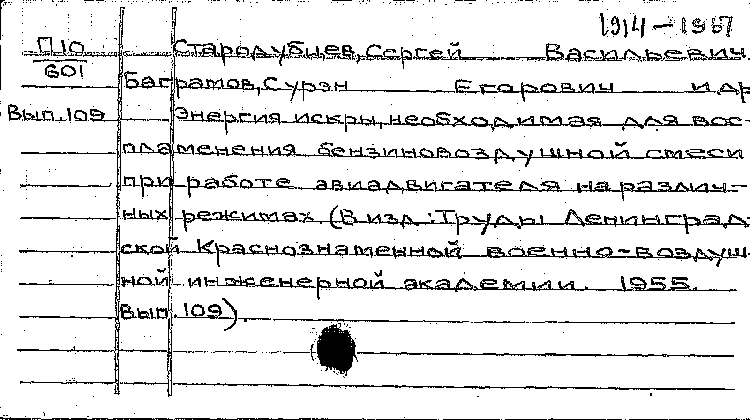 1914-1957
П10 Стародубцев, Сергей Васильевич.
601
Баграмов, Сурэн Егорович и др
Вып.109 Энергия искры, необходимая для вос-
пламенения бензиновоздушной смеси
при работе авиадвигателя на различ-
ных режимах. (В изд.: Труды Ленинград-
ской Краснознаменной военно-воздуш-
ной инженерной академии. 1955.
Вып. 109).